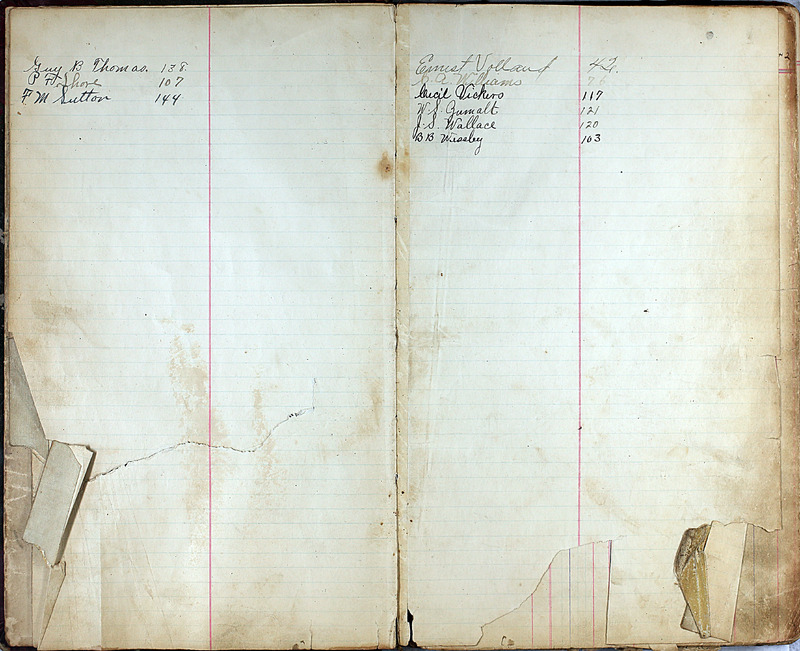 Guy B Thomas. 138
P F Shore 107
F M Sutton 144
Ernest Volland 42.
A Williams
Cecil Vickers 117
W. S. Gumalt 121
J. S. Wallace 120
B B Wessley 103